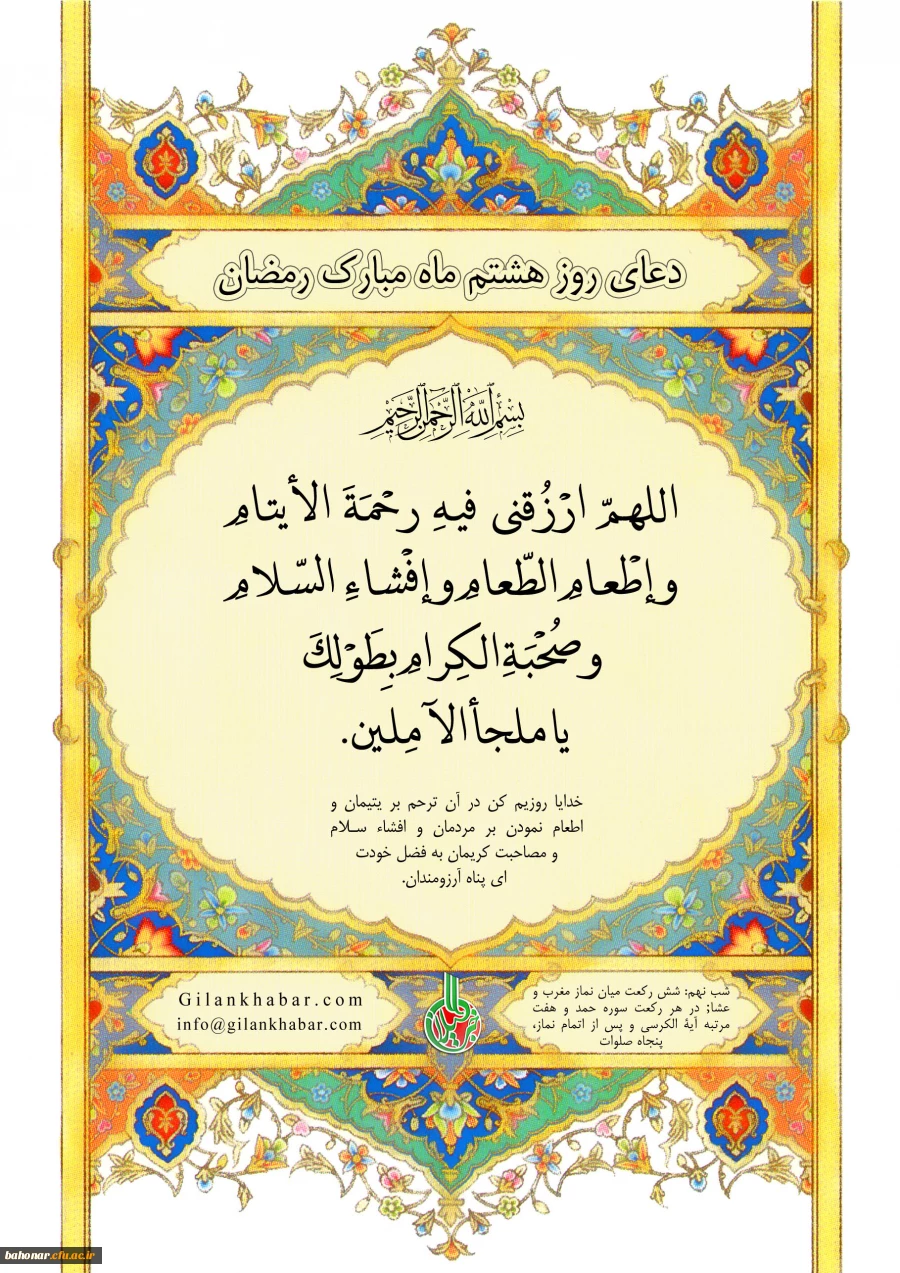 دعای روز هشتم ماه مبارک رمضان
بِسْمِ اللَّهِ الرَّحْمَنِ الرَّحِيمِ
اللهمّ ارْزُقنی فيهِ رحْمَةَ الأيتامِ
وإطْعامِ الطّعامِ وإفْشاءِ السّلامِ
وصُحْبَةِ الكِرامِ بِطَوْلِكَ
يا ملجأ الآمِلين.
خدایا روزیم کن در آن ترحم بر یتیمان و
اطعام نمودن بر مردمان و افشاء سـلام
و مصاحبت کریمان به فضل خودت
ای پناه آرزومندان.
شب نهم: شش رکعت میان نماز مغرب و
عشا; در هر رکعت سوره حمد و هفت
مرتبه آیۀ الکرسی و پس از اتمام نماز،
پنجاه صلوات
Gilankhabar.com
info@gilankhabar.com
bahonar.cfu.ac.ir